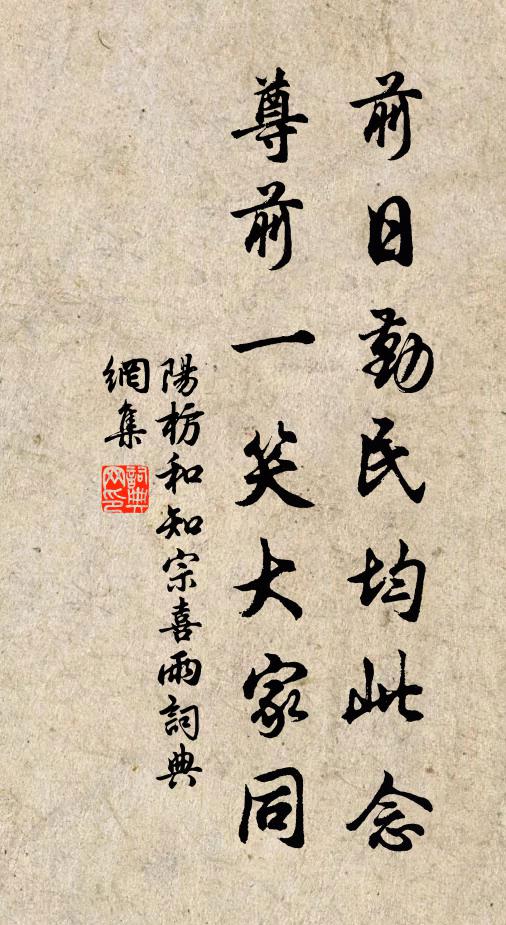 前日勤民均此念
尊前一笑大家同
陽枋和知宗喜雨詞典
網集
詞典
网印